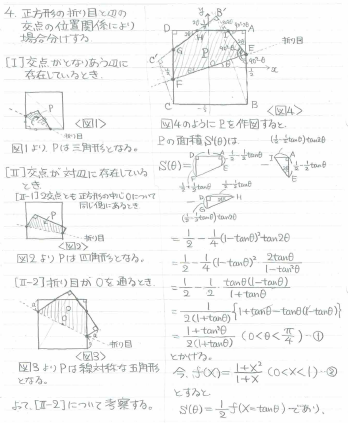 4. 正方形の折り目と辺の
交点の位置関係により
場合分けする.
[I]交点がとなりあう辺に
存在しているとき.
P
折り目
<図1>
図1よりPは三角形となる。
[II]交点が対辺に存在している
とき.
[II-1]2交点とも正方形の中心Oについて
同じ側にあるとき
P
折り目
<図2>
図2よりPは四角形となる。
[II-2]折り目がOを通るとき.
O
折り目
<図3>
図3よりPは線対称な五角形
となる。
よって、[II-2]について考察する。
y
B'
D
H
A
G
P
E
C'
F
O
x
C
B
折り目
<図4>
図4のようにPを作図すると
Pの面積S'(θ)は
S'(θ)=
= 1/2 - 1/4(1-tanθ)²tan2θ
= 1/2 - 1/4(1-tanθ)² 2tanθ/(1-tan²θ)
= 1/2 - 1/2 tanθ(1-tanθ)/(1+tanθ)
= 1/(2(1+tanθ)) {1+tanθ-tanθ(1-tanθ)}
= (1+tan²θ)/(2(1+tanθ)) (0<θ<π/4)-①
とかける。
今, f(x)=(1+x²)/(1+x) (0<x<1)-②
とすると
S'(θ)=1/2 f(x=tanθ)であり、